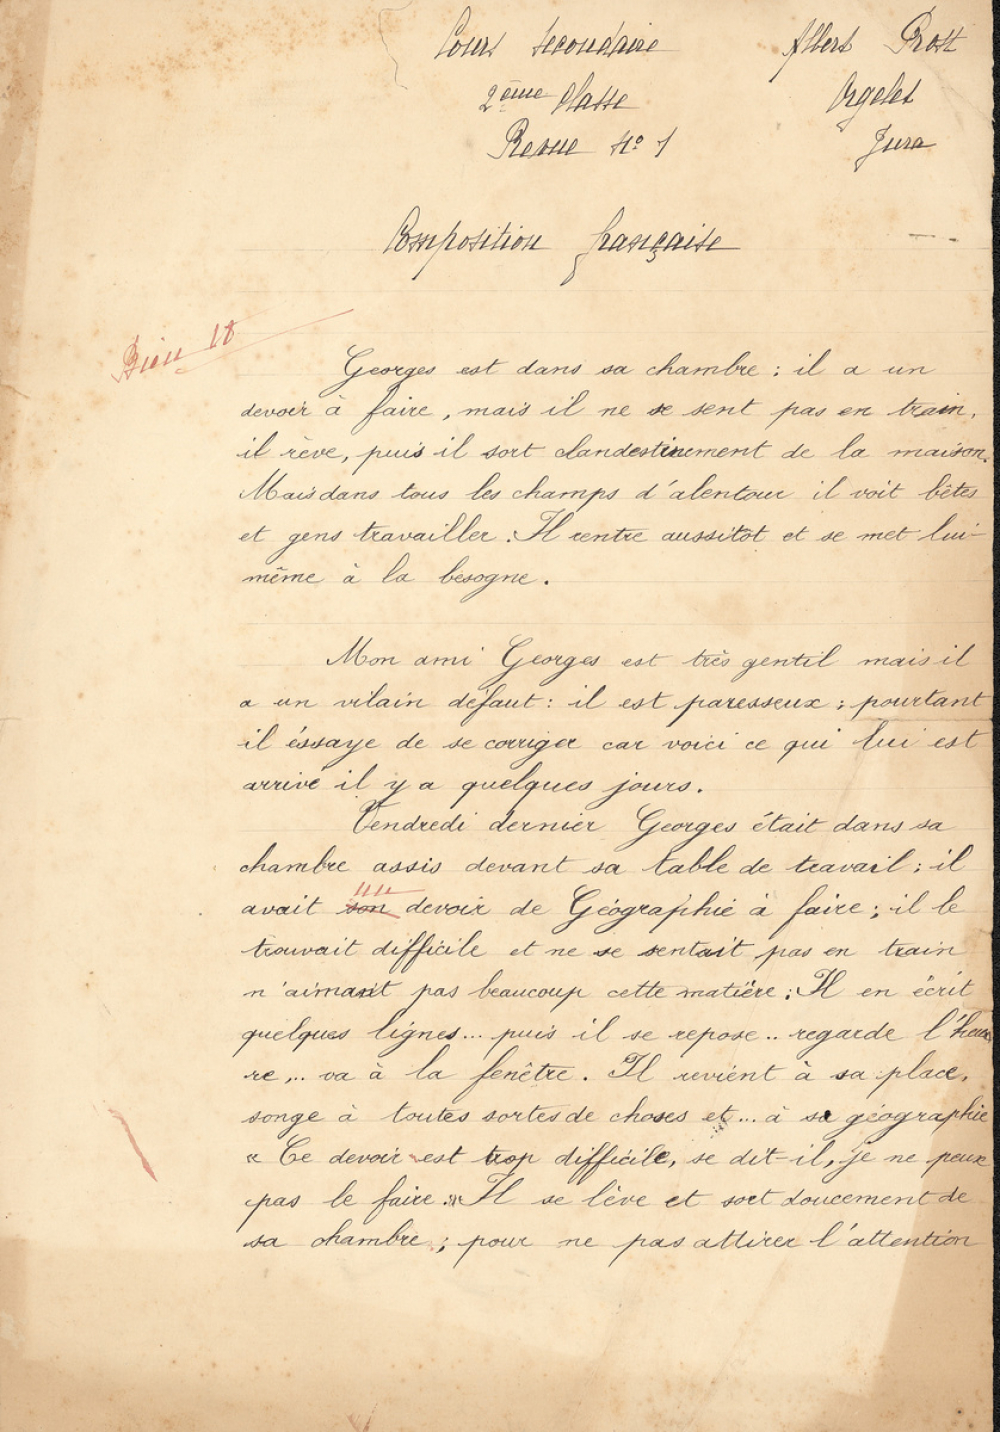 Cours secondaire
2ème Classe
Revue No 1
Albert Prost
Orgelet
Jura
Composition française
Bien 18
Georges est dans sa chambre : il a un
devoir à faire, mais il ne se sent pas en train,
il rêve, puis il sort clandestinement de la maison.
Mais dans tous les champs d'alentour il voit bêtes
et gens travailler. Il rentre aussitôt et se met lui-
même à la besogne.
Mon ami Georges est très gentil mais il
a un vilain défaut : il est paresseux ; pourtant
il éssaye de se corriger car voici ce qui lui est
arrivé il y a quelques jours.
Vendredi dernier Georges était dans sa
chambre assis devant sa table de travail ; il
un
avait son devoir de Géographie à faire ; il le
trouvait difficile et ne se sentait pas en train
n'aimant pas beaucoup cette matière ; Il en écrit
quelques lignes... puis il se repose.. regarde l'heu
re... va à la fenêtre. Il revient à sa place,
songe à toutes sortes de choses et... à sa géographie
« Ce devoir est trop difficile, se dit-il, je ne peux
pas le faire. » Il se lève et sort doucement de
sa chambre ; pour ne pas attirer l'attention